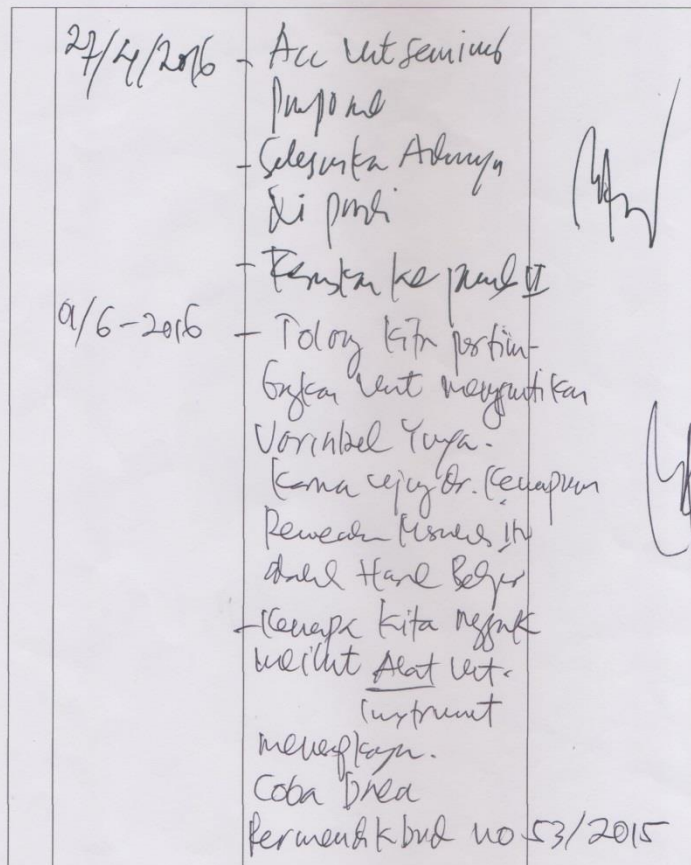 27/4/2016 - Acc unt seminar
proposal
- Selesaikan Admnya
di prodi
- Teruskan ke pemb II
9/6-2016 - Tolong kita pertim-
bangkan unt menggantikan
Variabel Y nya.
Karna ujung dr. Kemampuan
itu
adalah Hasil Belajar
- Kenapa kita nggak
Alat unt.
instrument
Coba baca
Permendikbud no 53/2015